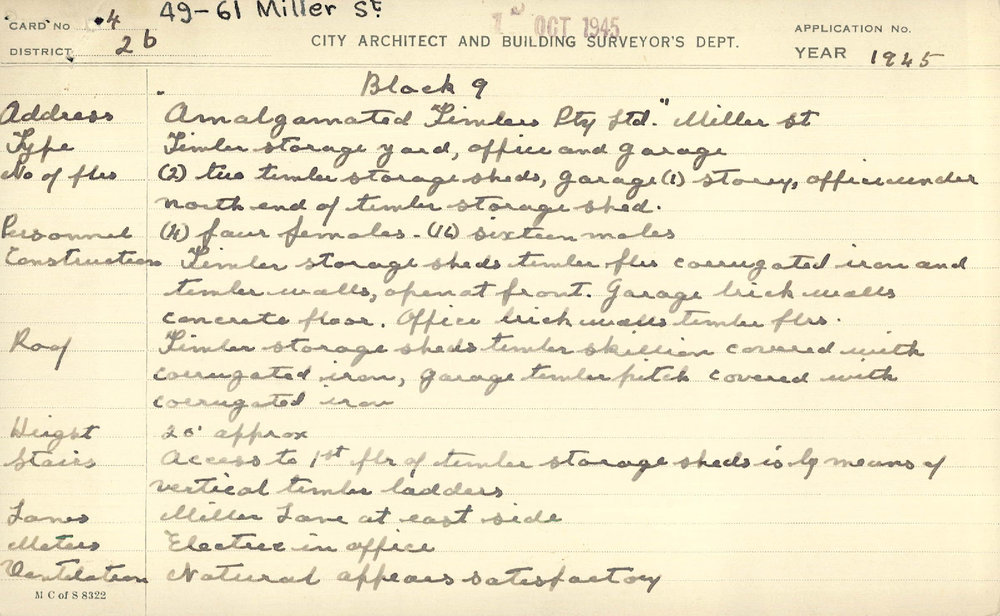 CARD No 4 49-61 Miller St 1 OCT 1945 APPLICATION No.
DISTRICT 2b CITY ARCHITECT AND BUILDING SURVEYOR'S DEPT. YEAR 1945
Block 9
Address "Amalgamated Timbers Pty Ltd." Miller st
Type Timber storage yard, office and garage
No of flrs (2) two timber storage sheds, garage (1) storey, office under
north end of timber storage shed.
Personnel (4) four females - (16) sixteen males
Construction Timber storage sheds timber flrs corrugated iron and
timber walls, open at front. Garage brick walls
concrete floor. Office brick walls timber flrs.
Roof Timber storage sheds timber skillion covered with
corrugated iron, garage timber pitch covered with
corrugated iron
Height 20' approx
Stairs Access to 1st flr of timber storage sheds is by means of
vertical timber ladders
Lanes Miller Lane at east side
Meters Electric in office
Ventilation Natural appears satisfactory
M C of S 8322